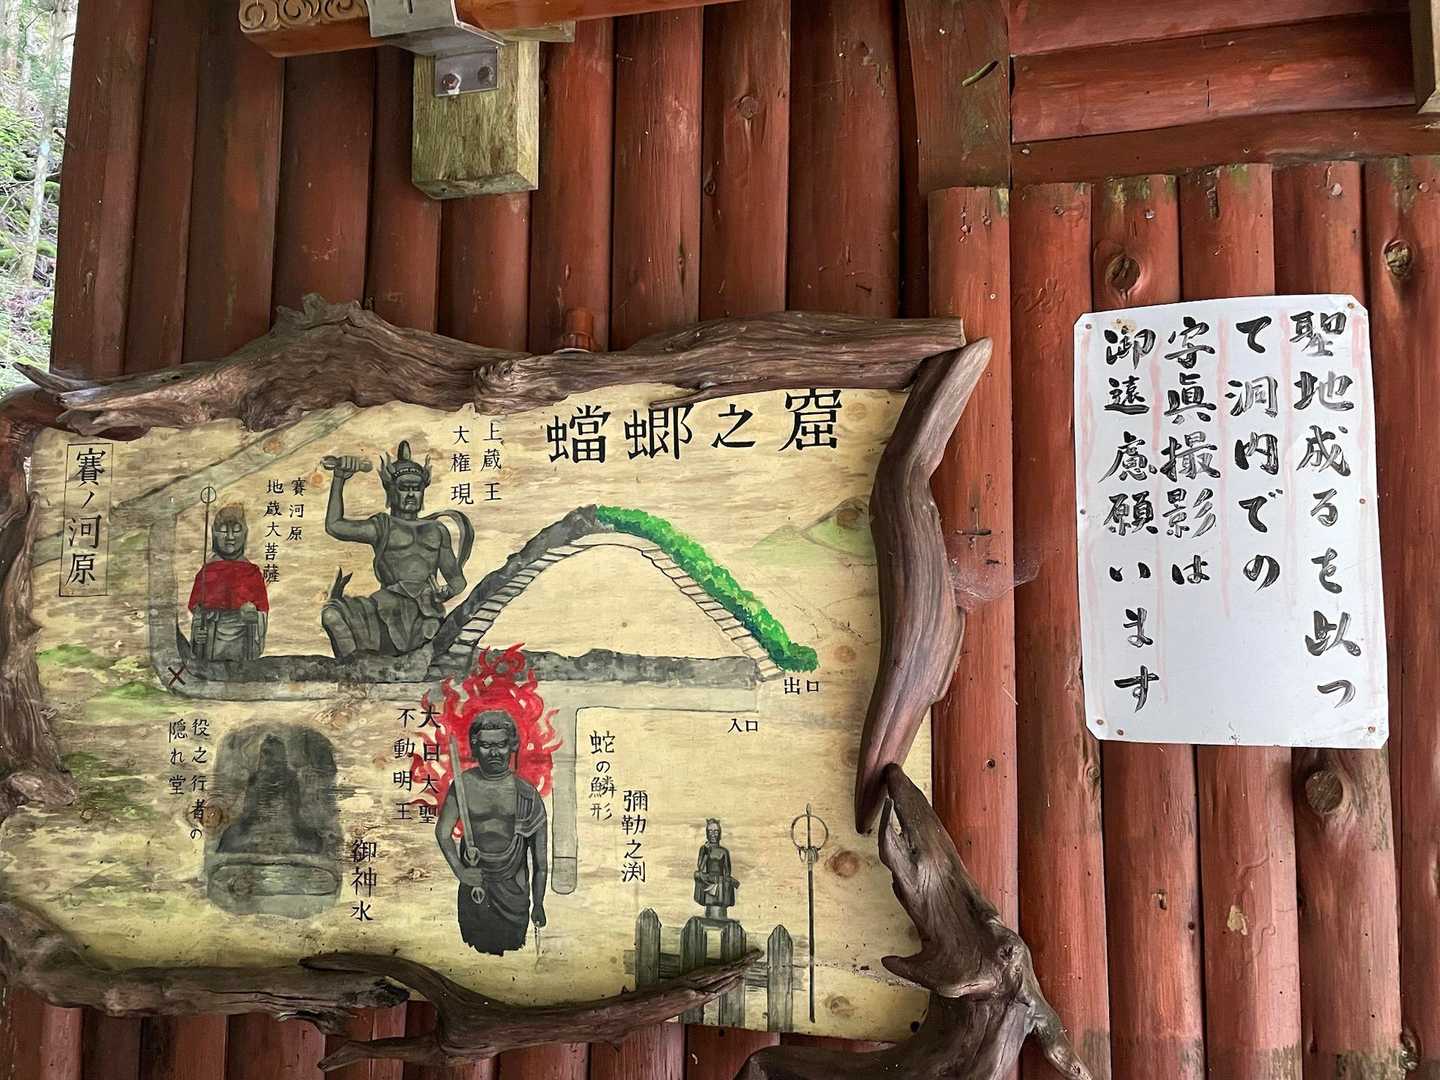 蟷螂之窟
上蔵王
大権現
賽河原
地蔵大菩薩
賽ノ河原
出口
入口
大日大聖
不動明王
役之行者の
隠れ堂
御神水
蛇の鱗形
彌勒之渕
聖地成るを以っ
て洞内での
字真撮影は
御遠慮願います